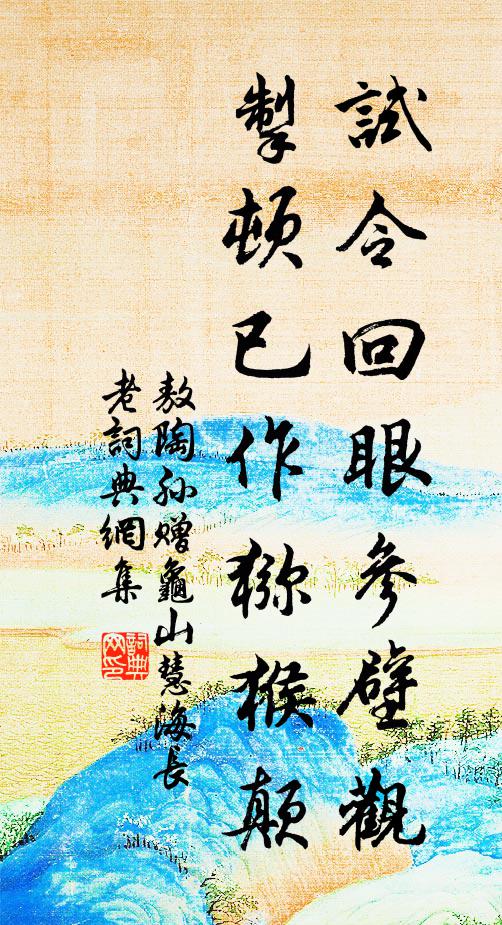 試令回眼參壁觀
掣頓已作獼猴顛
敖陶孫贈龜山慧海長
老詞典網集
詞典
网